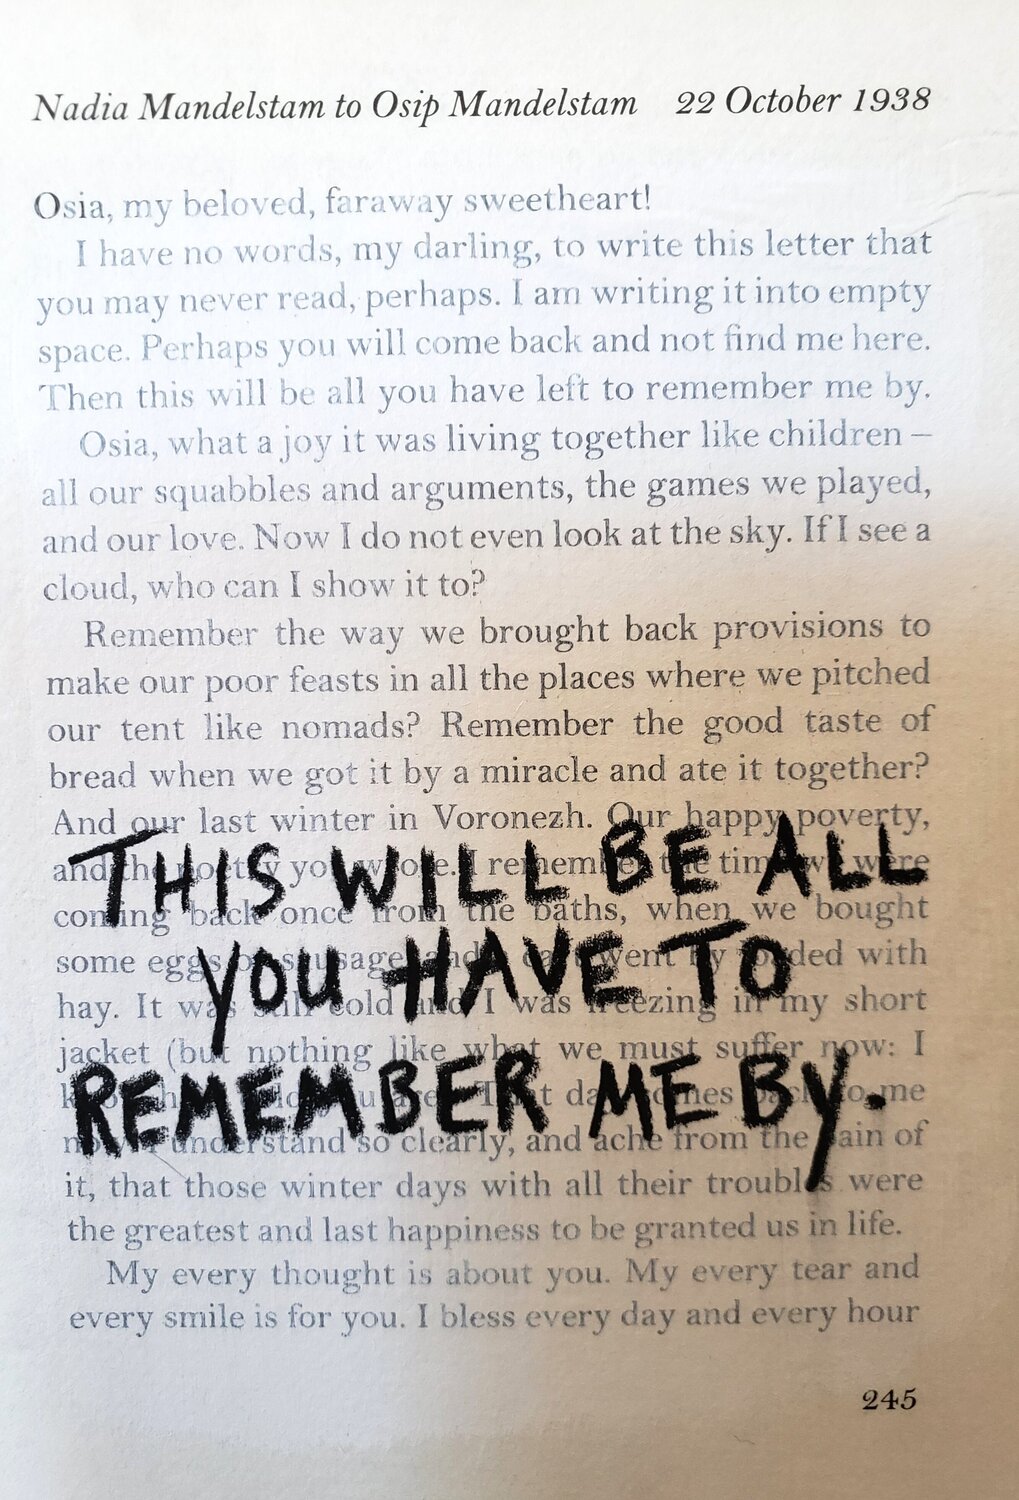 Nadia Mandelstam to Osip Mandelstam 22 October 1938
Osia, my beloved, faraway sweetheart!
I have no words, my darling, to write this letter that
you may never read, perhaps. I am writing it into empty
space. Perhaps you will come back and not find me here.
Then this will be all you have left to remember me by.
Osia, what a joy it was living together like children –
all our squabbles and arguments, the games we played,
and our love. Now I do not even look at the sky. If I see a
cloud, who can I show it to?
Remember the way we brought back provisions to
make our poor feasts in all the places where we pitched
our tent like nomads? Remember the good taste of
bread when we got it by a miracle and ate it together?
And our last winter in Voronezh. Our happy poverty,
and the poetry you wrote. I remember the time we were
coming back once from the baths, when we bought
some eggs or sausage, and a cart went by loaded with
hay. It was still cold and I was freezing in my short
jacket (but nothing like what we must suffer now: I
know how cold you are). That day comes back to me
now. I understand so clearly, and ache from the pain of
it, that those winter days with all their troubles were
the greatest and last happiness to be granted us in life.
My every thought is about you. My every tear and
every smile is for you. I bless every day and every hour
THIS WILL BE ALL
YOU HAVE TO
REMEMBER ME BY.
245